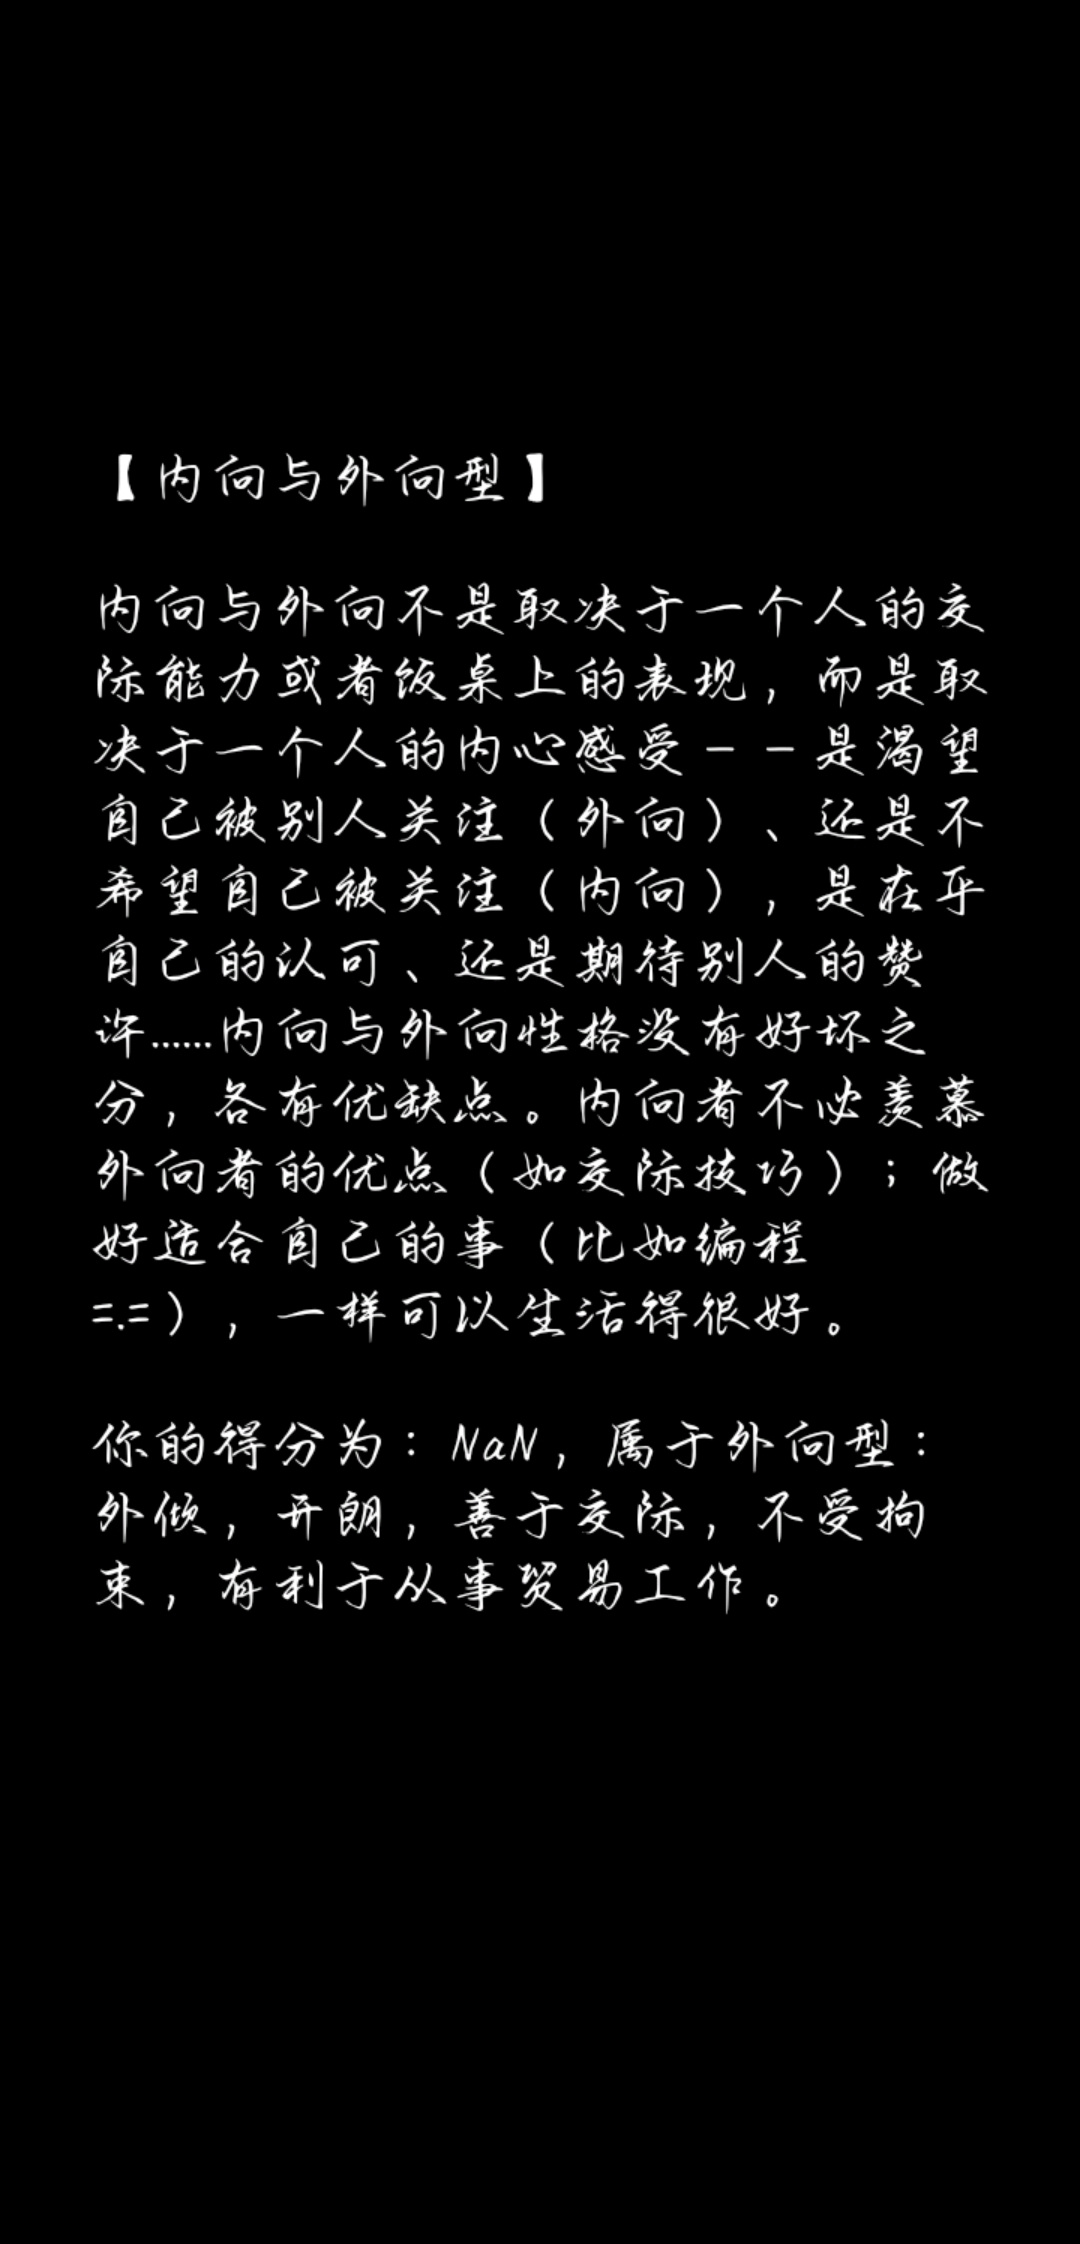 【内向与外向型】
内向与外向不是取决于一个人的交
际能力或者饭桌上的表现，而是取
决于一个人的内心感受－－是渴望
自己被别人关注（外向）、还是不
希望自己被关注（内向），是在乎
自己的认可、还是期待别人的赞
许......内向与外向性格没有好坏之
分，各有优缺点。内向者不必羡慕
外向者的优点（如交际技巧）；做
好适合自己的事（比如编程
=.=），一样可以生活得很好。
你的得分为：NaN，属于外向型：
外倾，开朗，善于交际，不受拘
束，有利于从事贸易工作。